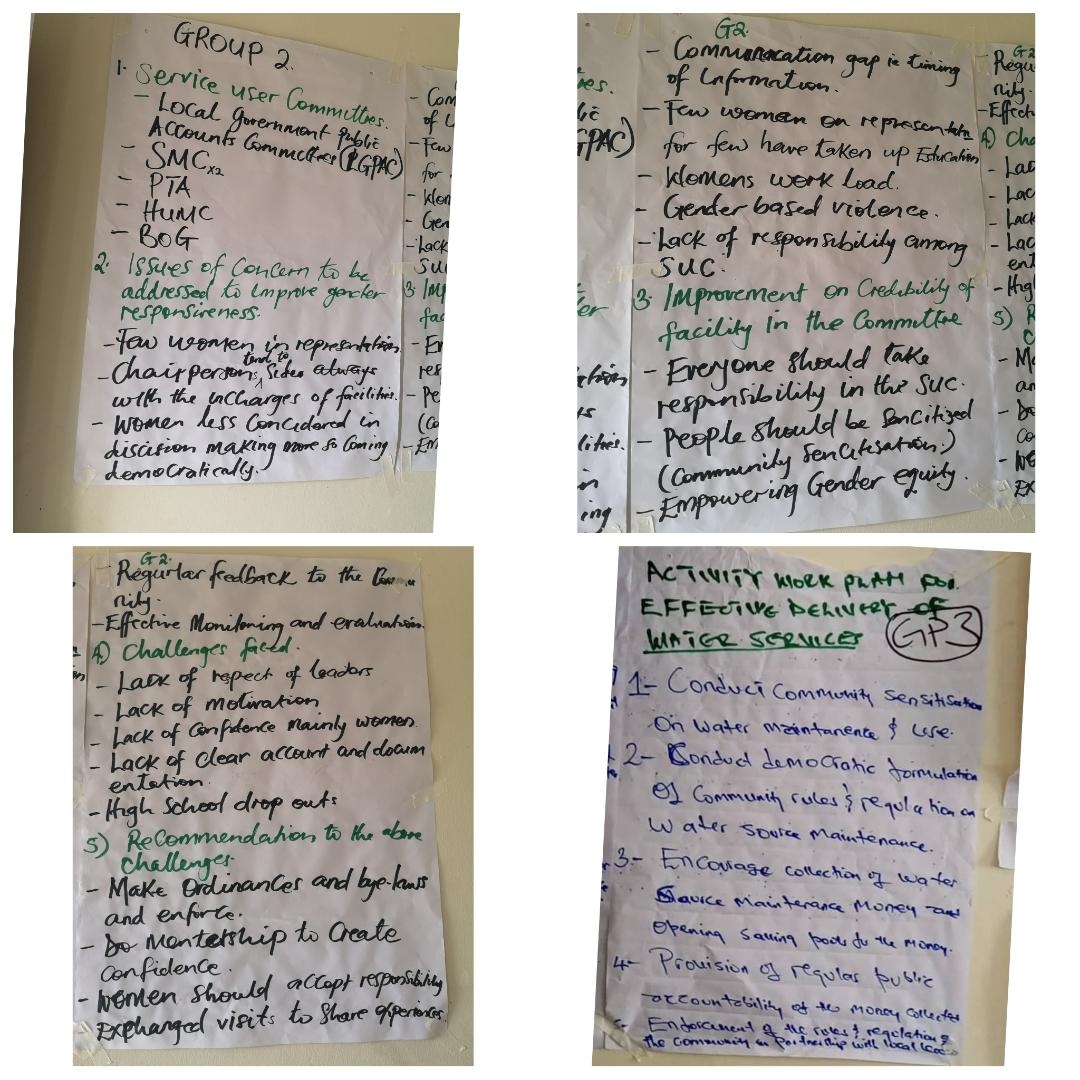 GROUP 2.
1. Service user Committees.
- Local government public
Accounts Committees (LGPAC)
- SMC x2
- PTA
- HUMC
- BOG
2. Issues of Concern to be
addressed to improve gender
responsireness.
- Few women in representation.
- Chairpersons tend to Sides always
with the incharges of facilities.
- Women less Concidered in
discision making more so Coming
democratically.
G2.
- Communacation gap ie timing
of Information.
- Few women on representatn
for few have taken up Education
- Womens work load.
- Gender based violence.
- Lack of responsibility among
SUC.
3. Improvement on Credibility of
facility in the Committee
- Everyone should take
responsibility in the SUC.
- People should be Sencitized
(Community Sencitisation.)
- Empowering Gender equity.
G2.
- Regurlar feedback to the Commu
nity.
- Effective Monitoring and evaluation.
4) Challenges faced.
- Lack of respect of leaders
- Lack of motivation
- Lack of Confidence Mainly women.
- Lack of Clear account and docum
entation.
- High School drop outs
5) Recommendation to the above
challenges.
- Make Ordinances and bye-laws
and enforce.
- Do Mentership to Create
Confidence.
- Women should accept responsibility
Exphanged visits to Share experiences.
ACTIVITY WORK PLAN FOR
EFFECTIVE DELIVERY OF
WATER SERVICES
GP3
1- Conduct Community sensitisation
On water maintanence & use.
2- Conduct democratic formulation
Of Community rules & regulation on
Water source Maintenance.
3- Encourage collection of water
Source Mainterance Money and
Opening saving books for the money.
4- Provision of regular public
accountability of the money collected
5- Endorcement of the rules & regulation of
the community in partnership with local leaders